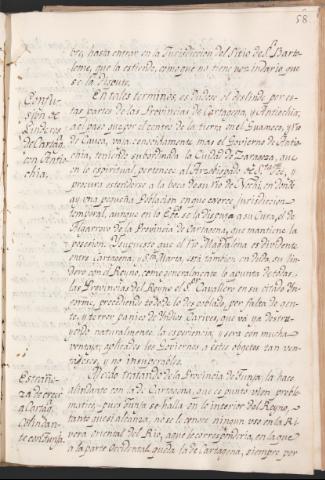 58.
bre, hasta entrar en la Jurisdiccion del Sitio de S. Barto-
lome, que la estiende, como que no tiene vezindario que
se la dispute.
Confu-
sion de
Linderos
de Cartag.
con Antio-
chia.
En tales terminos, es dudoso el deslinde por es-
tas partes de las Provincias de Cartagena, y Antiochia;
a el paso que por el centro de la tierra en el Guamoco, y rio
de Cauca, va conocidamente mas el Govierno de Antio-
chia, teniendo subordinada la Ciudad de Zaragoza, que
en lo espiritual pertenece al Arzobispado de S.ta Fee, y
procura estenderse a la boca de su rio de Nechi, en donde
ay una pequeña Poblacion en que exerce jurisdiccion
temporal, aunque en lo se la disputa a su Cura, el de
de la Provincia de Cartagena, que mantiene la
posecion. Y supuesto que el rio Magdalena es dividente
entre Cartagena, y S.ta Marta, està tambien en duda su lin-
dero con el Reyno, como generalmente lo apunta de todas
las Provincias del Reyno el S.r Cavallero en su citado In-
forme, procediendo todo de lo despoblado, por falta de gen-
te, y terror panico de Yndios Carives, que va ya destru-
yendo naturalmente la esperiencia, y serà con mucha
ventaja, aplicados los Goviernos a estos objetos tan ven-
tajosos, y no insuperables.
Estrañe-
za de creer
a Cartag.
colindan-
te con Tunja.
tratando de la Provincia de Tunja, la hace
alindante con la de Cartagena, que es punto bien proble-
matico, pues Tunja se halla en lo interior del Reyno,
tanto que si alcanza, no se le conoce ninguno uso en la Ri-
vera oriental del Rio, aqui le correspondería, en la que
a la parte Occidental queda la de Cartagena, siempre por